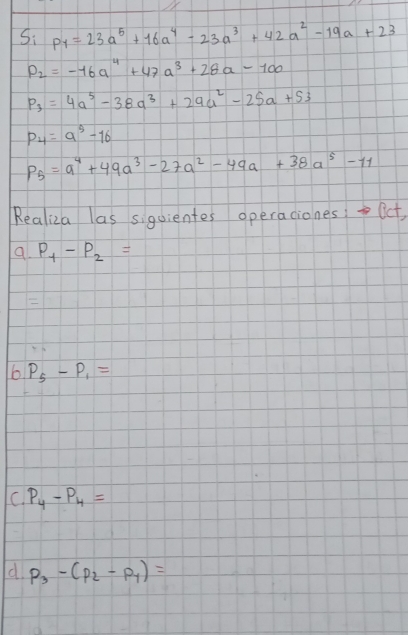 Si P1 = 23a⁵ + 16a⁴ - 23a³ + 42a² - 19a + 23
P2 = -16a⁴ + 47a³ + 28a - 100
P3 = 4a⁵ - 38a³ + 29a² - 25a + 53
P4 = a⁵ - 16
P5 = a⁴ + 49a³ - 27a² - 49a + 38a⁵ - 11
Realiza las siguientes operaciones: →
a. P1 - P2 =
=
b. P5 - P1 =
c. P4 - P4 =
d. P3 - (P2 - P1) =